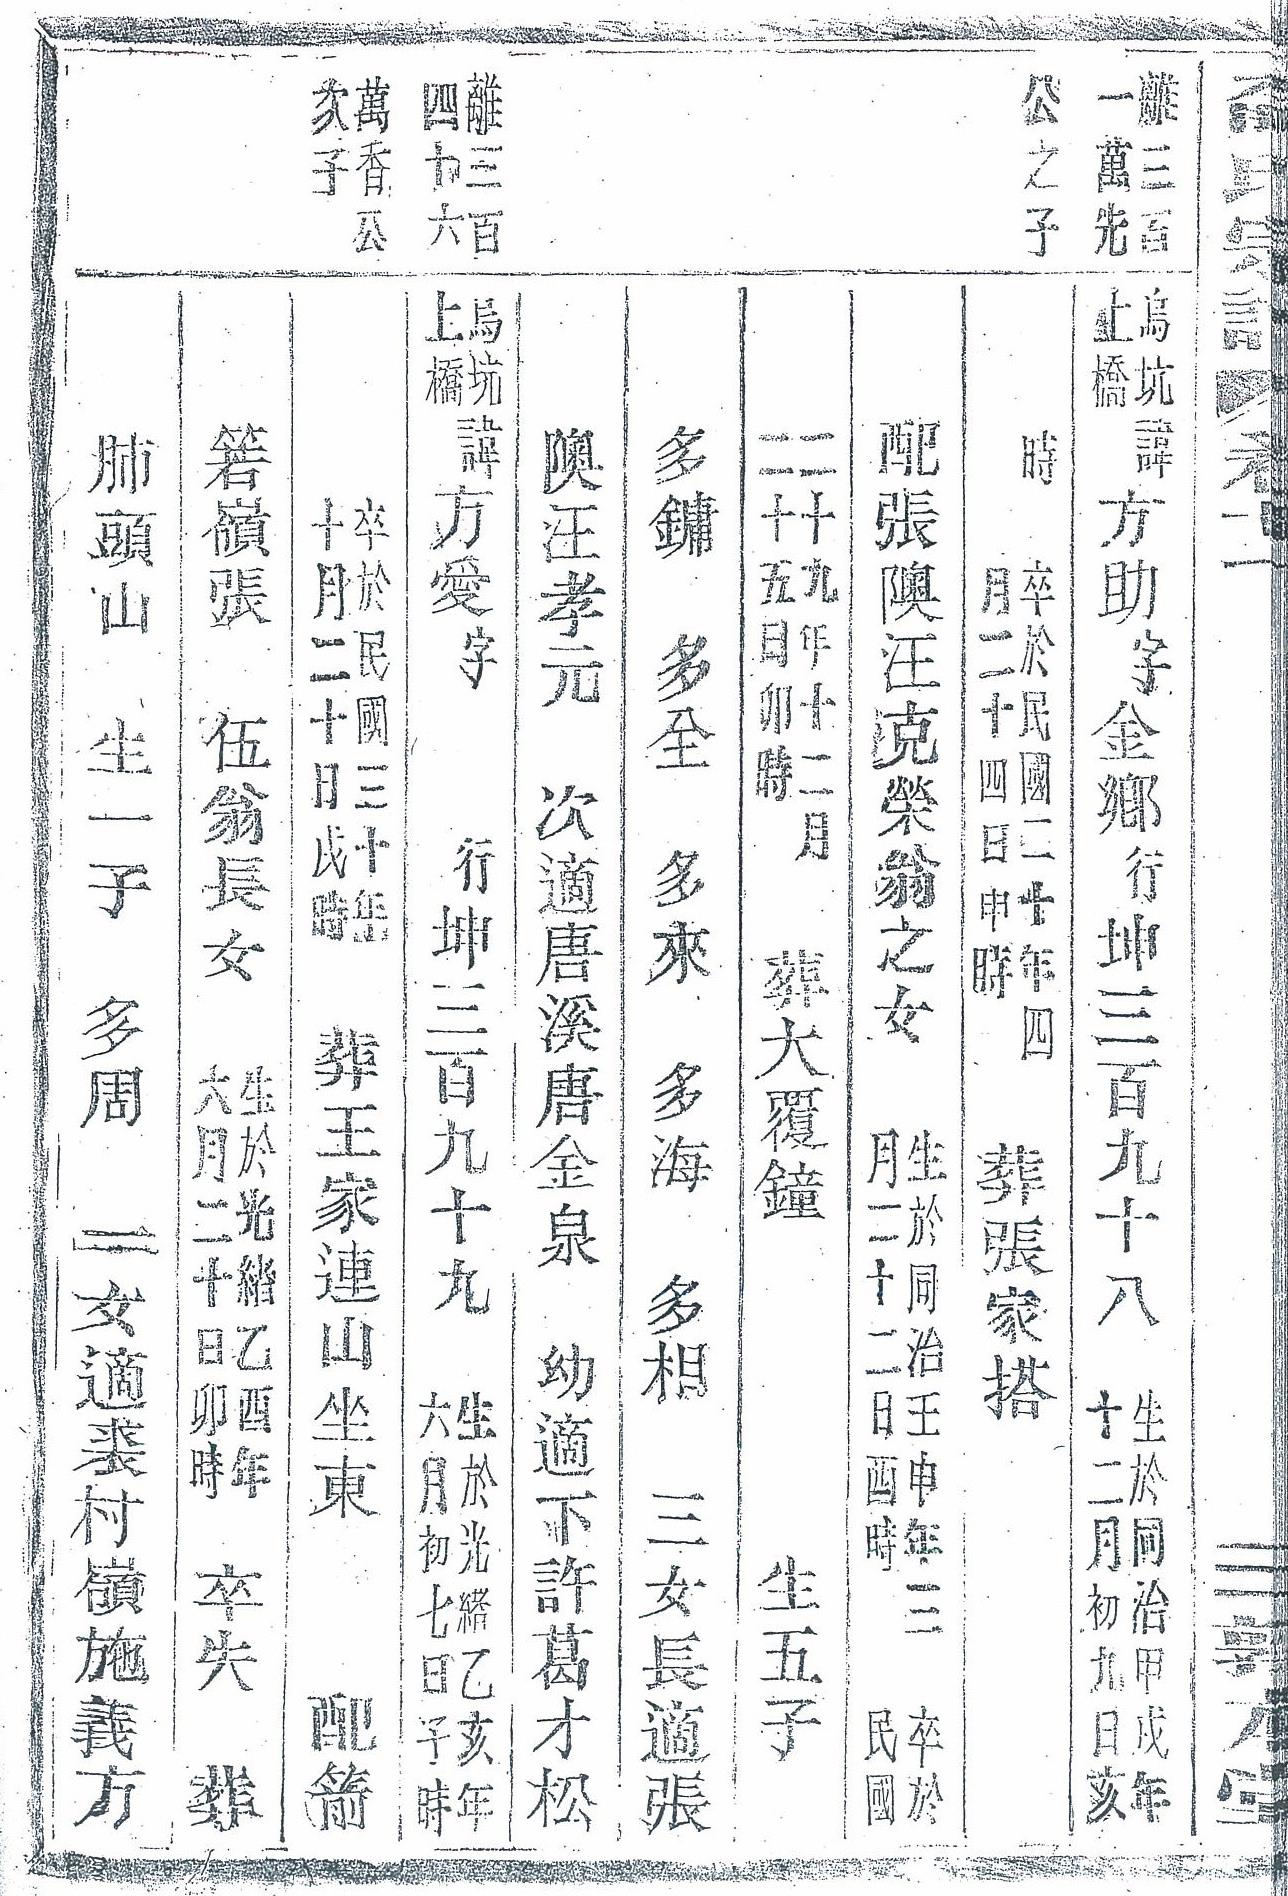 離三百
一萬先
公之子
離三百
四十六
萬香公
次子
烏坑
上橋
諱方助字金鄉行坤三百九十八
生於同治甲戌年
十二月初九日亥
時
卒於民國二十年四
月二十四日申時
葬張家搭
配張隩汪克榮翁之女
生於同治壬申年三
月二十二日酉時
卒於
民國
三十九年十二月
二十五日卯時
葬大覆鐘 生五子
多鏽 多全 多來 多海 多相 三女長適張
隩汪孝元 次適唐溪唐金泉 幼適下許葛才松
烏坑
上橋
諱方愛字 行坤三百九十九
生於光緒乙亥年
六月初七日子時
卒於民國三十年
十月二十日戌時
葬王家連山坐東 配箬
箬嶺張 伍翁長女
生於光緒乙酉年
六月二十日卯時
卒失 葬
肺頭山 生一子 多周 一女適裘村嶺施義方